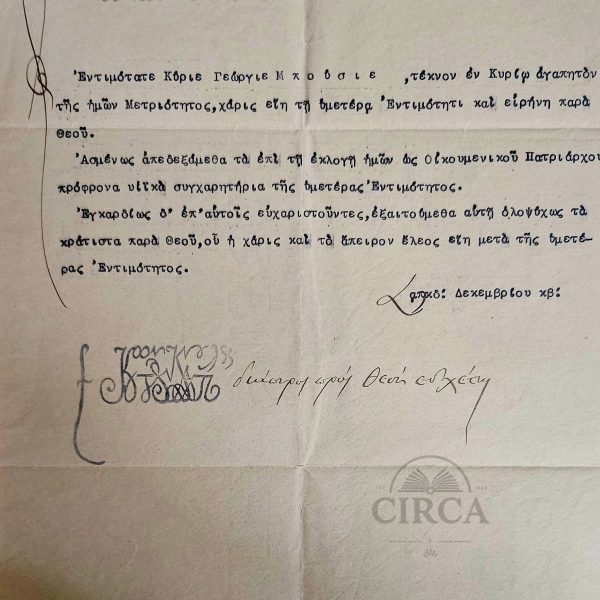 Ἐντιμότατε Κύριε Γεώργιε Μπούσιε ,τέκνον ἐν Κυρίῳ ἀγαπητὸν
τῆς ἡμῶν Μετριότητος,χάρις εἴη τῇ ὑμετέρᾳ Ἐντιμότητι καὶ εἰρήνη παρὰ
Θεοῦ.
Ἀσμένως ἀπεδεξάμεθα τὰ ἐπὶ τῇ ἐκλογῇ ἡμῶν ὡς Οἰκουμενικοῦ Πατριάρχου
πρόφρονα υἱϊκὰ συγχαρητήρια τῆς ὑμετέρας Ἐντιμότητος.
Ἐγκαρδίως δ' ἐπ'αὐτοῖς εὐχαριστοῦντες,ἐξαιτούμεθα αὐτῇ ὁλοψύχως τὰ
κράτιστα παρὰ Θεοῦ,οὗ ἡ χάρις καὶ τὸ ἄπειρον ἔλεος εἴη μετὰ τῆς ὑμετέ-
ρας Ἐντιμότητος.
͵αϡκδ: Δεκεμβρίου κβ:
διάπυρος πρὸς Θεὸν εὐχέτης
CIRCA